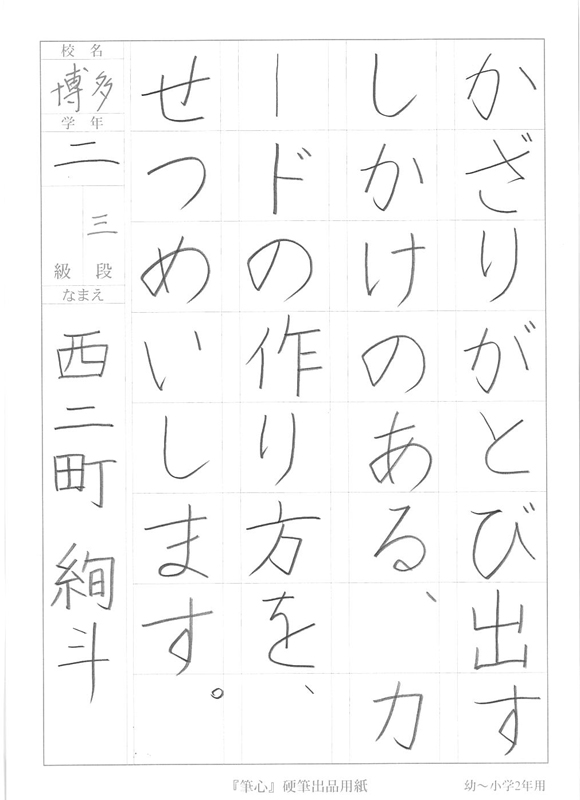 かざりがとび出す
しかけのある、カ
ードの作り方を、
せつめいします。
校名
博多
学年
二
三
級 段
なまえ
西二町 絢斗
『筆心』硬筆出品用紙
幼～小学2年用